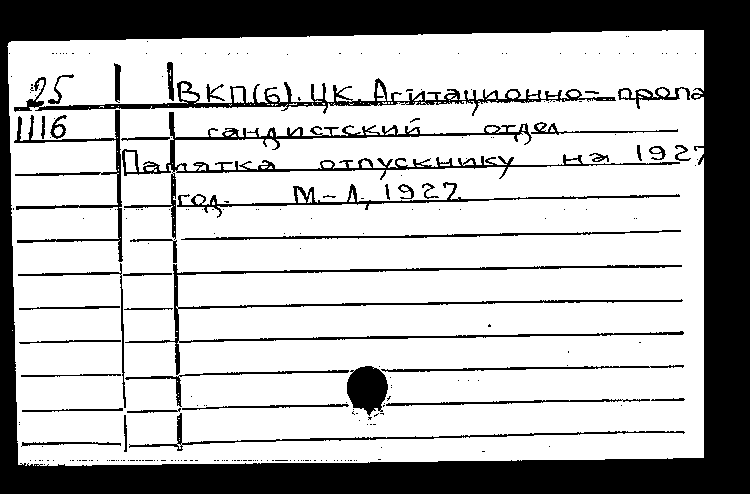 25 ВКП(б). ЦК. Агитационно-пропа
1116 гандистский отдел
Памятка отпускнику на 1927
год. М.-Л., 1927.